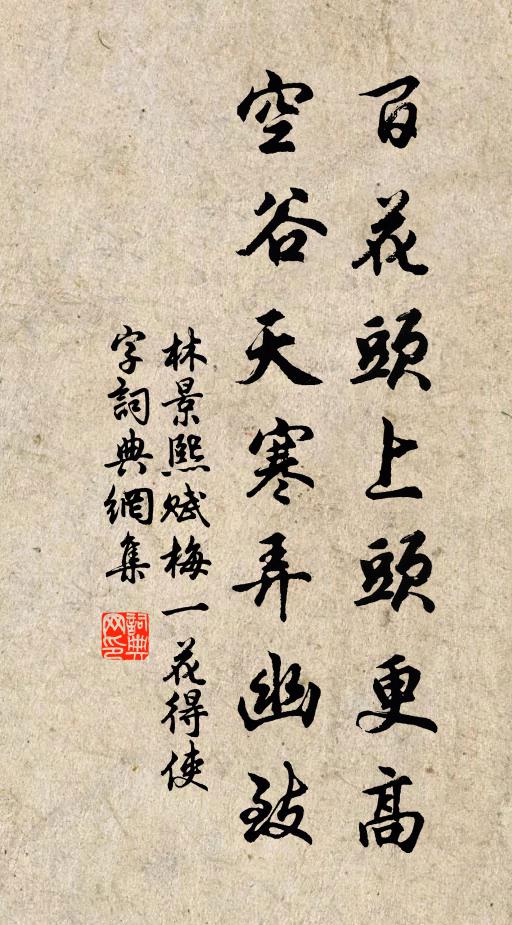 百花頭上頭更高
空谷天寒弄幽致
林景熙賦梅一花得使
字詞典網集
詞典网印